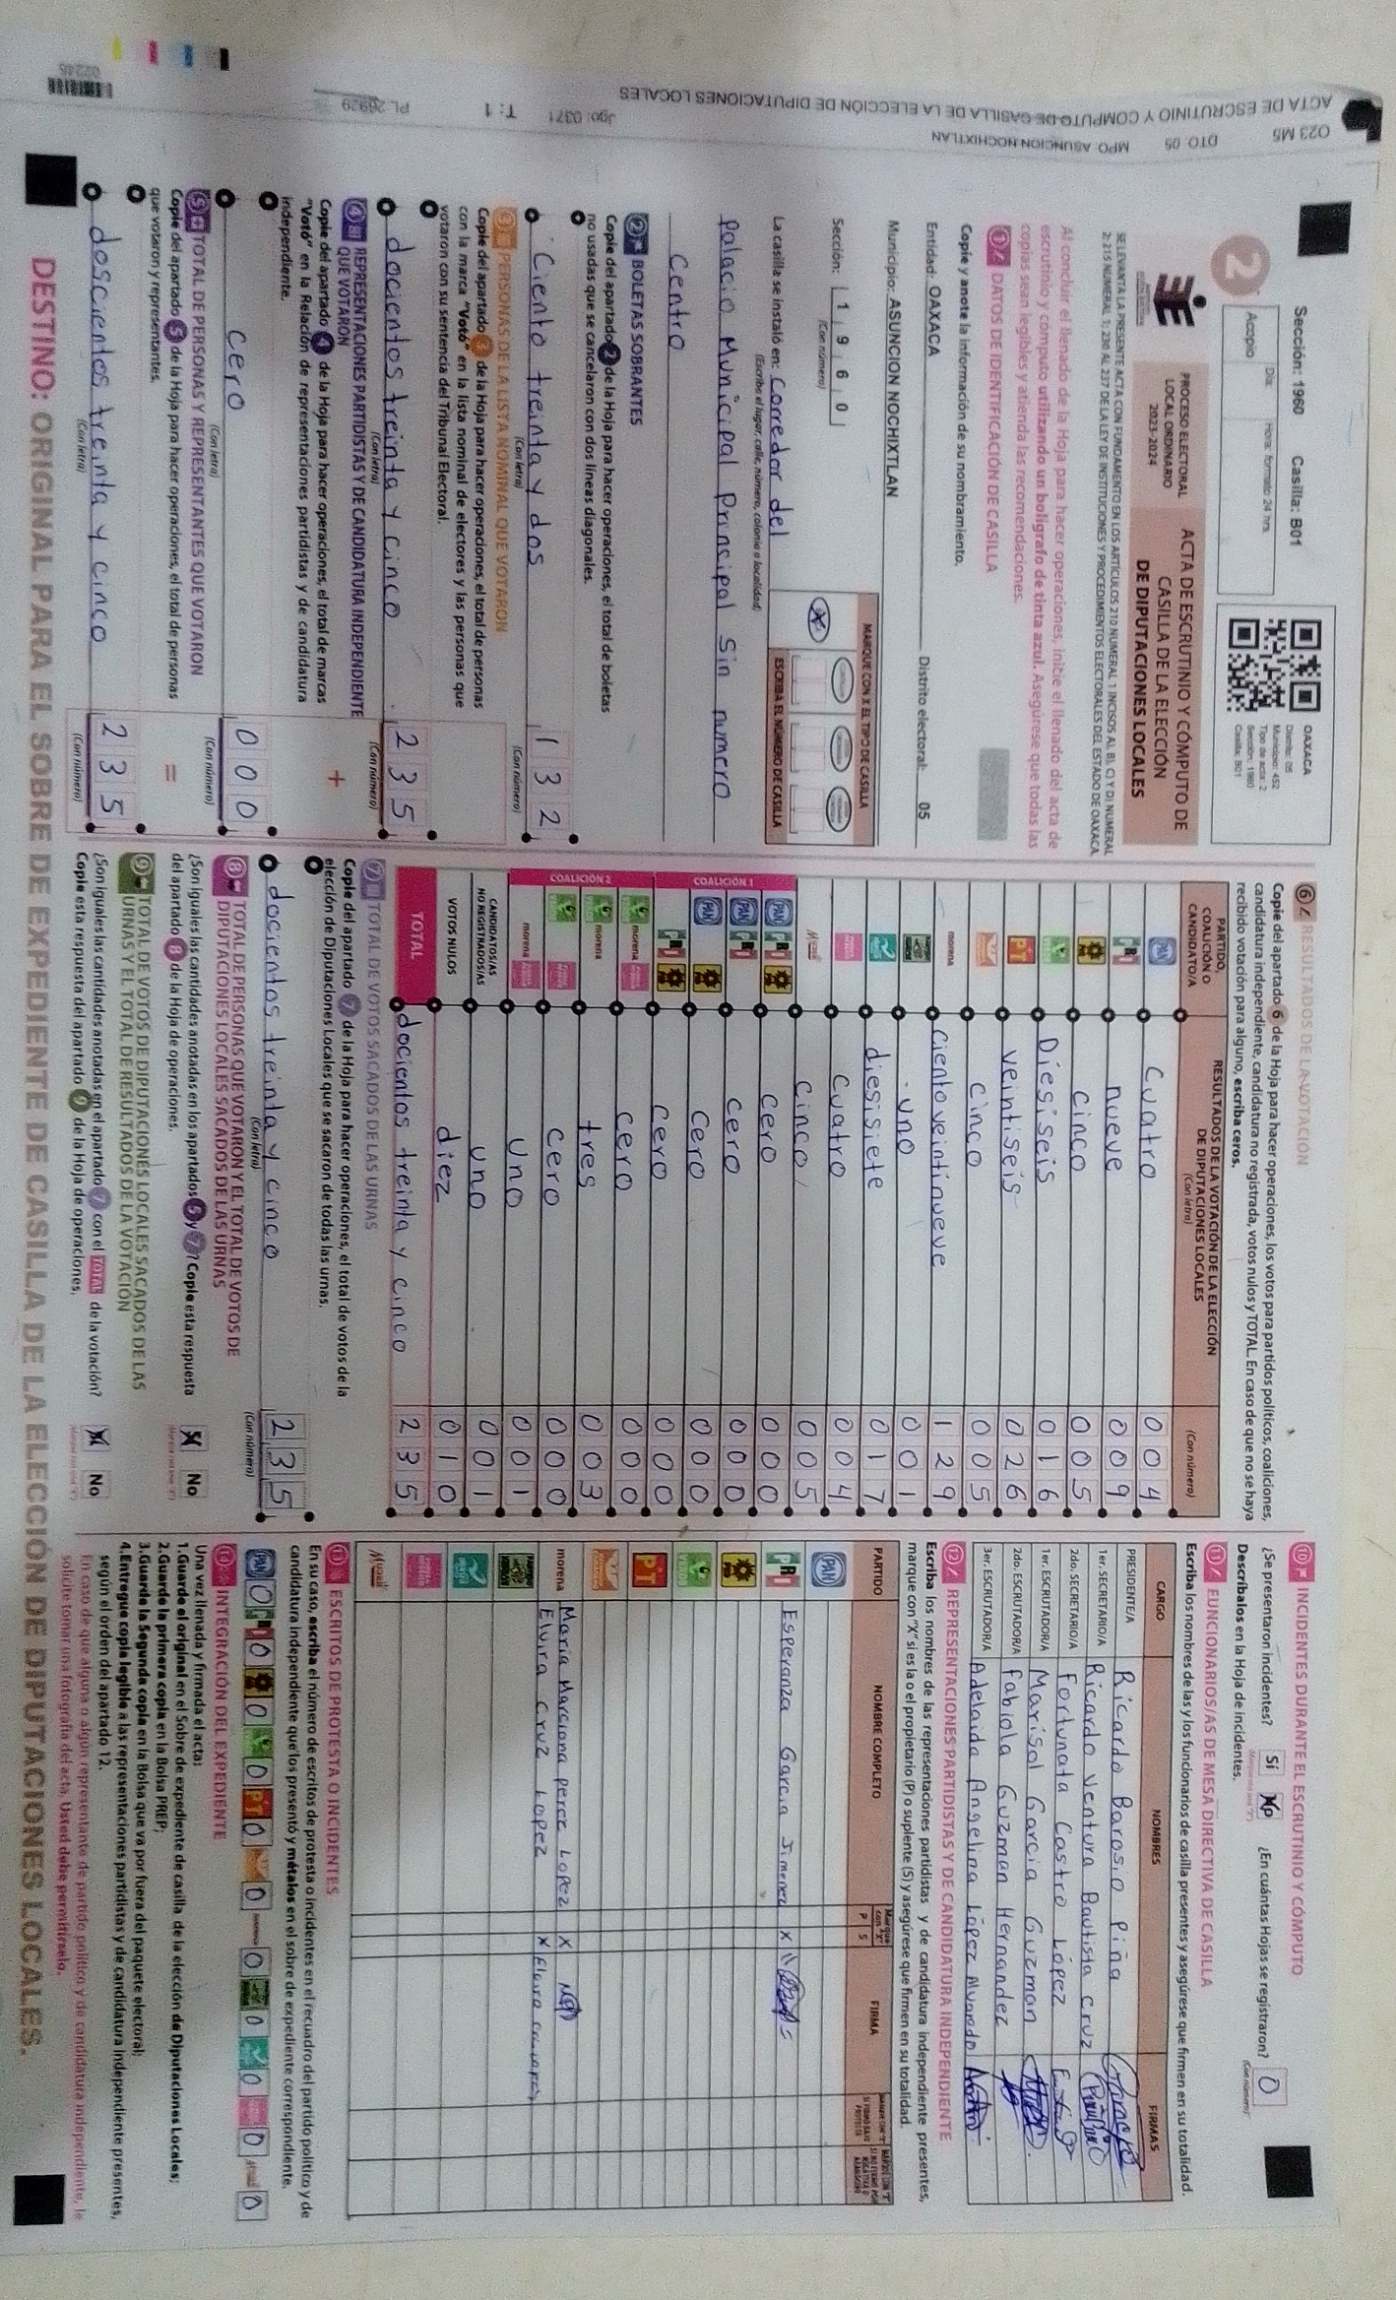 Sección: 1960 Casilla: B01
Día: Hora: formato 24 hrs.
Acopio
2
OAXACA
Distrito: 05
Municipio: 452
Tipo de acta: 2
Sección: 1960
Casilla: B01
PROCESO ELECTORAL
LOCAL ORDINARIO
2023-2024
ACTA DE ESCRUTINIO Y CÓMPUTO DE
CASILLA DE LA ELECCIÓN
DE DIPUTACIONES LOCALES
Al concluir el llenado de la Hoja para hacer operaciones, inicie el llenado del acta de
escrutinio y cómputo utilizando un bolígrafo de tinta azul. Asegúrese que todas las
copias sean legibles y atienda las recomendaciones.
1 DATOS DE IDENTIFICACIÓN DE CASILLA
Copie y anote la información de su nombramiento.
Entidad: OAXACA Distrito electoral: 05
Municipio: ASUNCION NOCHIXTLAN
Sección: 1 9 6 0
(Con número)
MARQUE CON X EL TIPO DE CASILLA
ESCRIBA EL NÚMERO DE CASILLA
La casilla se instaló en: Corredor del
(Escriba el lugar, calle, número, colonia o localidad)
palacio Municipal Principal Sin numero
Centro
2 BOLETAS SOBRANTES
Copie del apartado 2 de la Hoja para hacer operaciones, el total de boletas
no usadas que se cancelaron con dos líneas diagonales.
Ciento treinta y dos 1 3 2
(Con letra) (Con número)
3 PERSONAS DE LA LISTA NOMINAL QUE VOTARON
Copie del apartado 3 de la Hoja para hacer operaciones, el total de personas
con la marca "Votó" en la lista nominal de electores y las personas que
votaron con su sentencia del Tribunal Electoral.
docientos treinta y cinco 2 3 5
(Con letra) (Con número)
4 REPRESENTACIONES PARTIDISTAS Y DE CANDIDATURA INDEPENDIENTE
QUE VOTARON
Copie del apartado 4 de la Hoja para hacer operaciones, el total de marcas
"Votó" en la Relación de representaciones partidistas y de candidatura
independiente.
+
cero 0 0 0
(Con letra) (Con número)
5 TOTAL DE PERSONAS Y REPRESENTANTES QUE VOTARON
Copie del apartado 5 de la Hoja para hacer operaciones, el total de personas
que votaron y representantes.
=
doscientos treinta y cinco 2 3 5
(Con letra) (Con número)
6 RESULTADOS DE LA VOTACIÓN
Copie del apartado 6 de la Hoja para hacer operaciones, los votos para partidos políticos, coaliciones,
candidatura independiente, candidatura no registrada, votos nulos y TOTAL. En caso de que no se haya
recibido votación para alguno, escriba ceros.
PARTIDO,
COALICIÓN O
CANDIDATO/A
RESULTADOS DE LA VOTACIÓN DE LA ELECCIÓN
DE DIPUTACIONES LOCALES
(Con letra) (Con número)
PAN Cuatro 0 0 4
PRI nueve 0 0 9
cinco 0 0 5
Diesiseis 0 1 6
PT veintiseis 0 2 6
cinco 0 0 5
morena Ciento veintinueve 1 2 9
uno 0 0 1
diesisiete 0 1 7
Cuatro 0 0 4
Cinco 0 0 5
COALICIÓN 1
PAN PRI cero 0 0 0
PAN PRI cero 0 0 0
PAN cero 0 0 0
PRI cero 0 0 0
COALICIÓN 2
morena cero 0 0 0
morena tres 0 0 3
cero 0 0 0
morena uno 0 0 1
CANDIDATOS/AS
NO REGISTRADOS/AS uno 0 0 1
VOTOS NULOS diez 0 1 0
TOTAL docientos treinta y cinco 2 3 5
7 TOTAL DE VOTOS SACADOS DE LAS URNAS
Copie del apartado 7 de la Hoja para hacer operaciones, el total de votos de la
elección de Diputaciones Locales que se sacaron de todas las urnas.
docientos treinta y cinco 2 3 5
(Con letra) (Con número)
8 TOTAL DE PERSONAS QUE VOTARON Y EL TOTAL DE VOTOS DE
DIPUTACIONES LOCALES SACADOS DE LAS URNAS
¿Son iguales las cantidades anotadas en los apartados 5 y 7? Copie esta respuesta
del apartado 8 de la Hoja de operaciones. X No
9 TOTAL DE VOTOS DE DIPUTACIONES LOCALES SACADOS DE LAS
URNAS Y EL TOTAL DE RESULTADOS DE LA VOTACIÓN
¿Son iguales las cantidades anotadas en el apartado 7 con el TOTAL de la votación?
Copie esta respuesta del apartado 9 de la Hoja de operaciones. X No
10 INCIDENTES DURANTE EL ESCRUTINIO Y CÓMPUTO
¿Se presentaron incidentes? Sí No ¿En cuántas Hojas se registraron? 0
Descríbalos en la Hoja de incidentes. (Con número)
11 FUNCIONARIOS/AS DE MESA DIRECTIVA DE CASILLA
Escriba los nombres de las y los funcionarios de casilla presentes y asegúrese que firmen en su totalidad.
CARGO NOMBRES FIRMAS
PRESIDENTE/A Ricardo Barosio Piña
1er. SECRETARIO/A Ricardo Ventura Bautista Cruz
2do. SECRETARIO/A Fortunata Castro López
1er. ESCRUTADOR/A Marisol Garcia Guzman
2do. ESCRUTADOR/A Fabiola Guzman Hernandez
3er. ESCRUTADOR/A Adelaida Angelina López Alvarado
12 REPRESENTACIONES PARTIDISTAS Y DE CANDIDATURA INDEPENDIENTE
Escriba los nombres de las representaciones partidistas y de candidatura independiente presentes,
marque con "X" si es la o el propietario (P) o suplente (S) y asegúrese que firmen en su totalidad.
PARTIDO NOMBRE COMPLETO P S FIRMA
PAN
PRI Esperanza Garcia Jimenez X
PT
morena Maria Marciona Perez Lopez X
Elvira Cruz Lopez X
13 ESCRITOS DE PROTESTA O INCIDENTES
En su caso, escriba el número de escritos de protesta o incidentes en el recuadro del partido político y de
candidatura independiente que los presentó y métalos en el sobre de expediente correspondiente.
PAN 0 PRI 0 0 0 PT 0 0 0 0 0 0 0
INTEGRACIÓN DEL EXPEDIENTE
Una vez llenada y firmada el acta:
1. Guarde el original en el Sobre de expediente de casilla de la elección de Diputaciones Locales;
2. Guarde la primera copia en la Bolsa PREP;
3. Guarde la Segunda copia en la Bolsa que va por fuera del paquete electoral;
4. Entregue copia legible a las representaciones partidistas y de candidatura independiente presentes,
según el orden del apartado 12.
En caso de que alguna o algún representante de partido político y de candidatura independiente, le
solicite tomar una fotografía del acta, Usted debe permitírselo.
DESTINO: ORIGINAL PARA EL SOBRE DE EXPEDIENTE DE CASILLA DE LA ELECCIÓN DE DIPUTACIONES LOCALES.
ACTA DE ESCRUTINIO Y CÓMPUTO DE CASILLA DE LA ELECCIÓN DE DIPUTACIONES LOCALES
023 M5 DTO. 05 MPO. ASUNCION NOCHIXTLAN
Jgo: 0371 T: 1 PL. 26929
02246